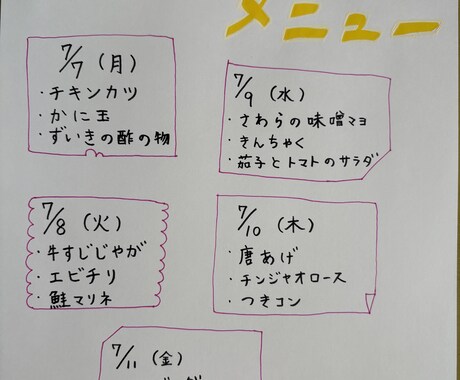 メニュー
7/7（月）
・チキンカツ
・かに玉
・ずいきの酢の物
7/8（火）
・牛すじじゃが
・エビチリ
・鮭マリネ
7/9（水）
・さわらの味噌マヨ
・きんちゃく
・茄子とトマトのサラダ
7/10（木）
・唐あげ
・チンジャオロース
・つきコン
7/11（金）